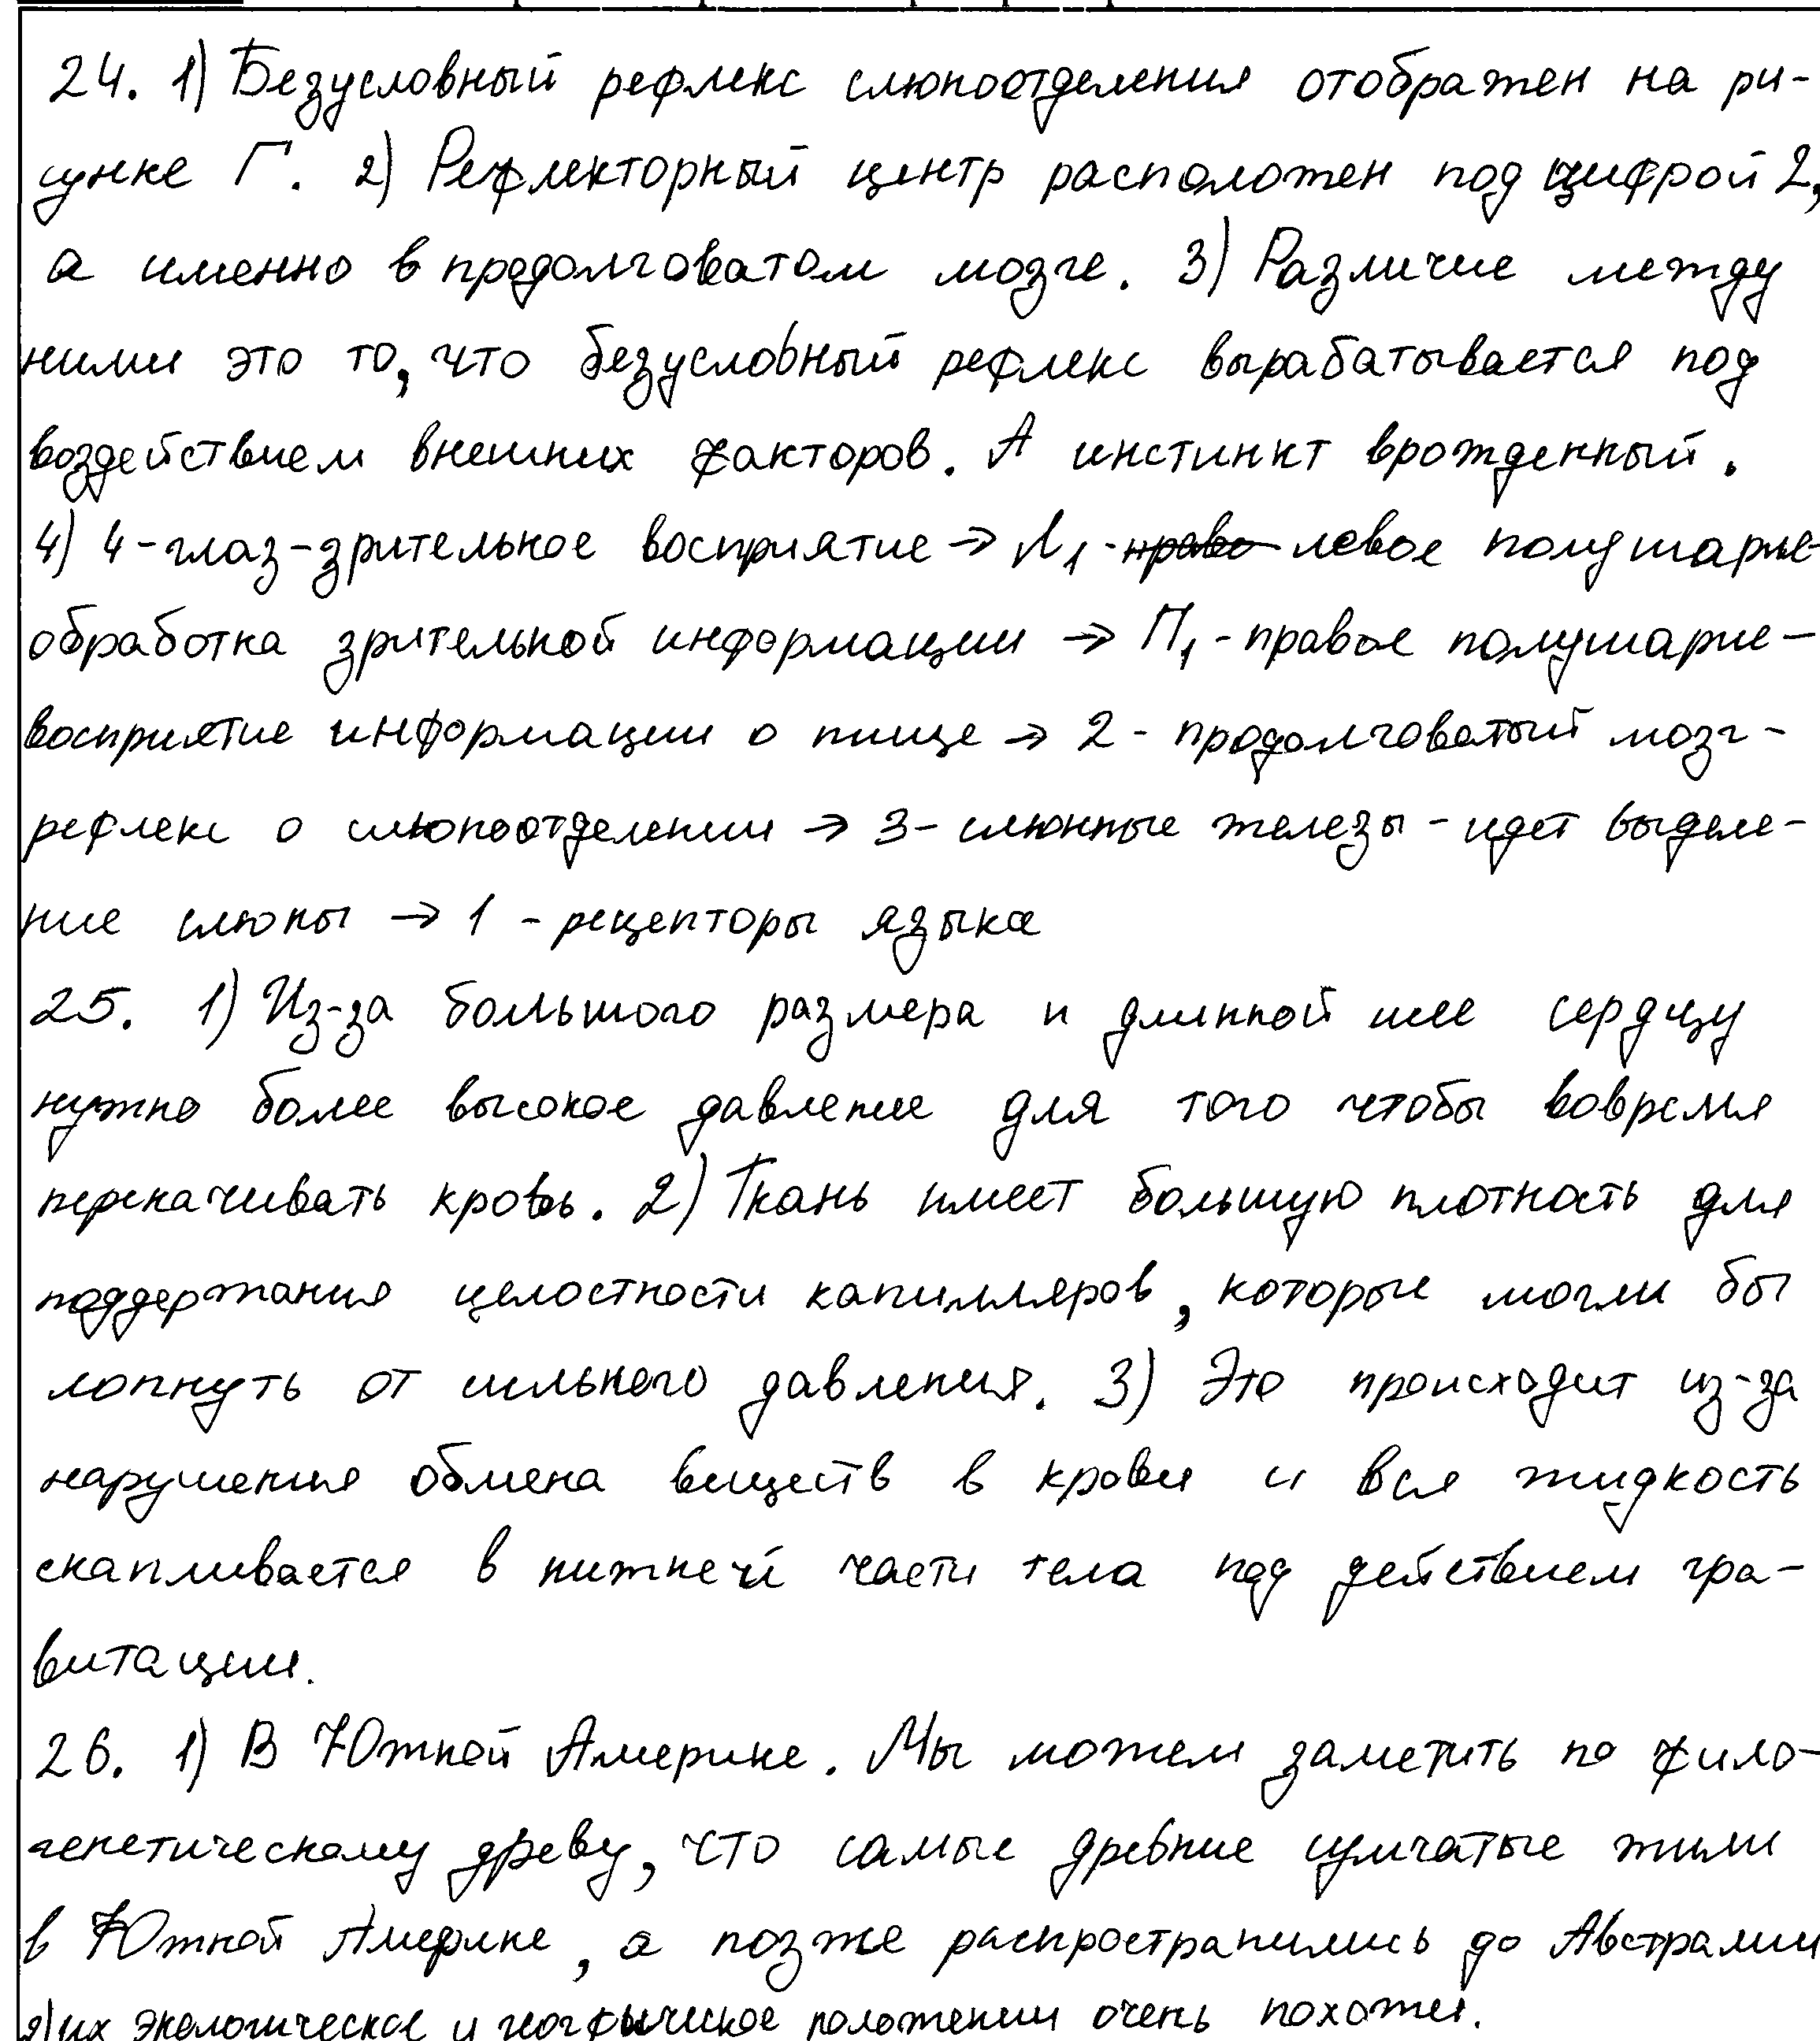 24. 1) Безусловный рефлекс слюноотделения отображен на ри-
сунке Г. 2) Рефлекторный центр расположен под цифрой 2,
а именно в продолговатом мозге. 3) Различие между
ними это то, что безусловный рефлекс вырабатывается под
воздействием внешних факторов. А инстинкт врожденный.
4) 4-глаз-зрительное восприятие → Л1-право левое полушарие-
обработка зрительной информации → П1-правое полушарие-
восприятие информации о пище → 2- продолговатый мозг-
рефлекс о слюноотделении → 3- слюнные железы - идет выделе-
ние слюны → 1 - рецепторы языка
25. 1) Из-за большого размера и длинной шее сердцу
нужно более высокое давление для того чтобы вовремя
перекачивать кровь. 2) Ткань имеет большую плотность для
поддержания целостности капилляров, которые могли бы
лопнуть от сильного давления. 3) Это происходит из-за
нарушения обмена веществ в крови и вся жидкость
скапливается в нижней части тела под действием гра-
витации.
26. 1) В Южной Америке. Мы можем заметить по фило-
генетическому древу, что самые древние сумчатые жили
в Южной Америке, а позже распространились до Австралии
2) их экологическое и географическое положении очень похожи.